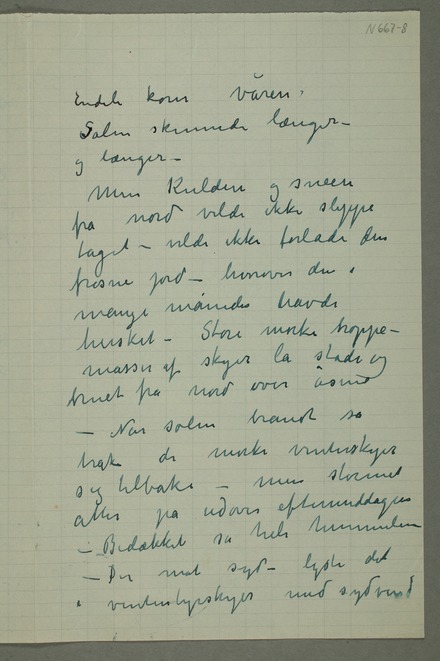 N 667-8
Endeli kom våren,
Solen skinnede længer –
og længer –
Men Kulden og sneen
fra nord vilde ikke slippe
taget – vilde ikke forlade den
frosne jord – hvorover den i
mange måneder havde
hersket – Store mørke troppe-
masser af skyer la stade og
truet fra nord over åsene
– Når solen brandt så
trak de mørke vinterskyer
sig tilbake – men stormet
atter på udover eftermiddagen
– Bedækket så hele himmelen
– Der mot syd – lyste det
i vinterbyrskyer med sydvind